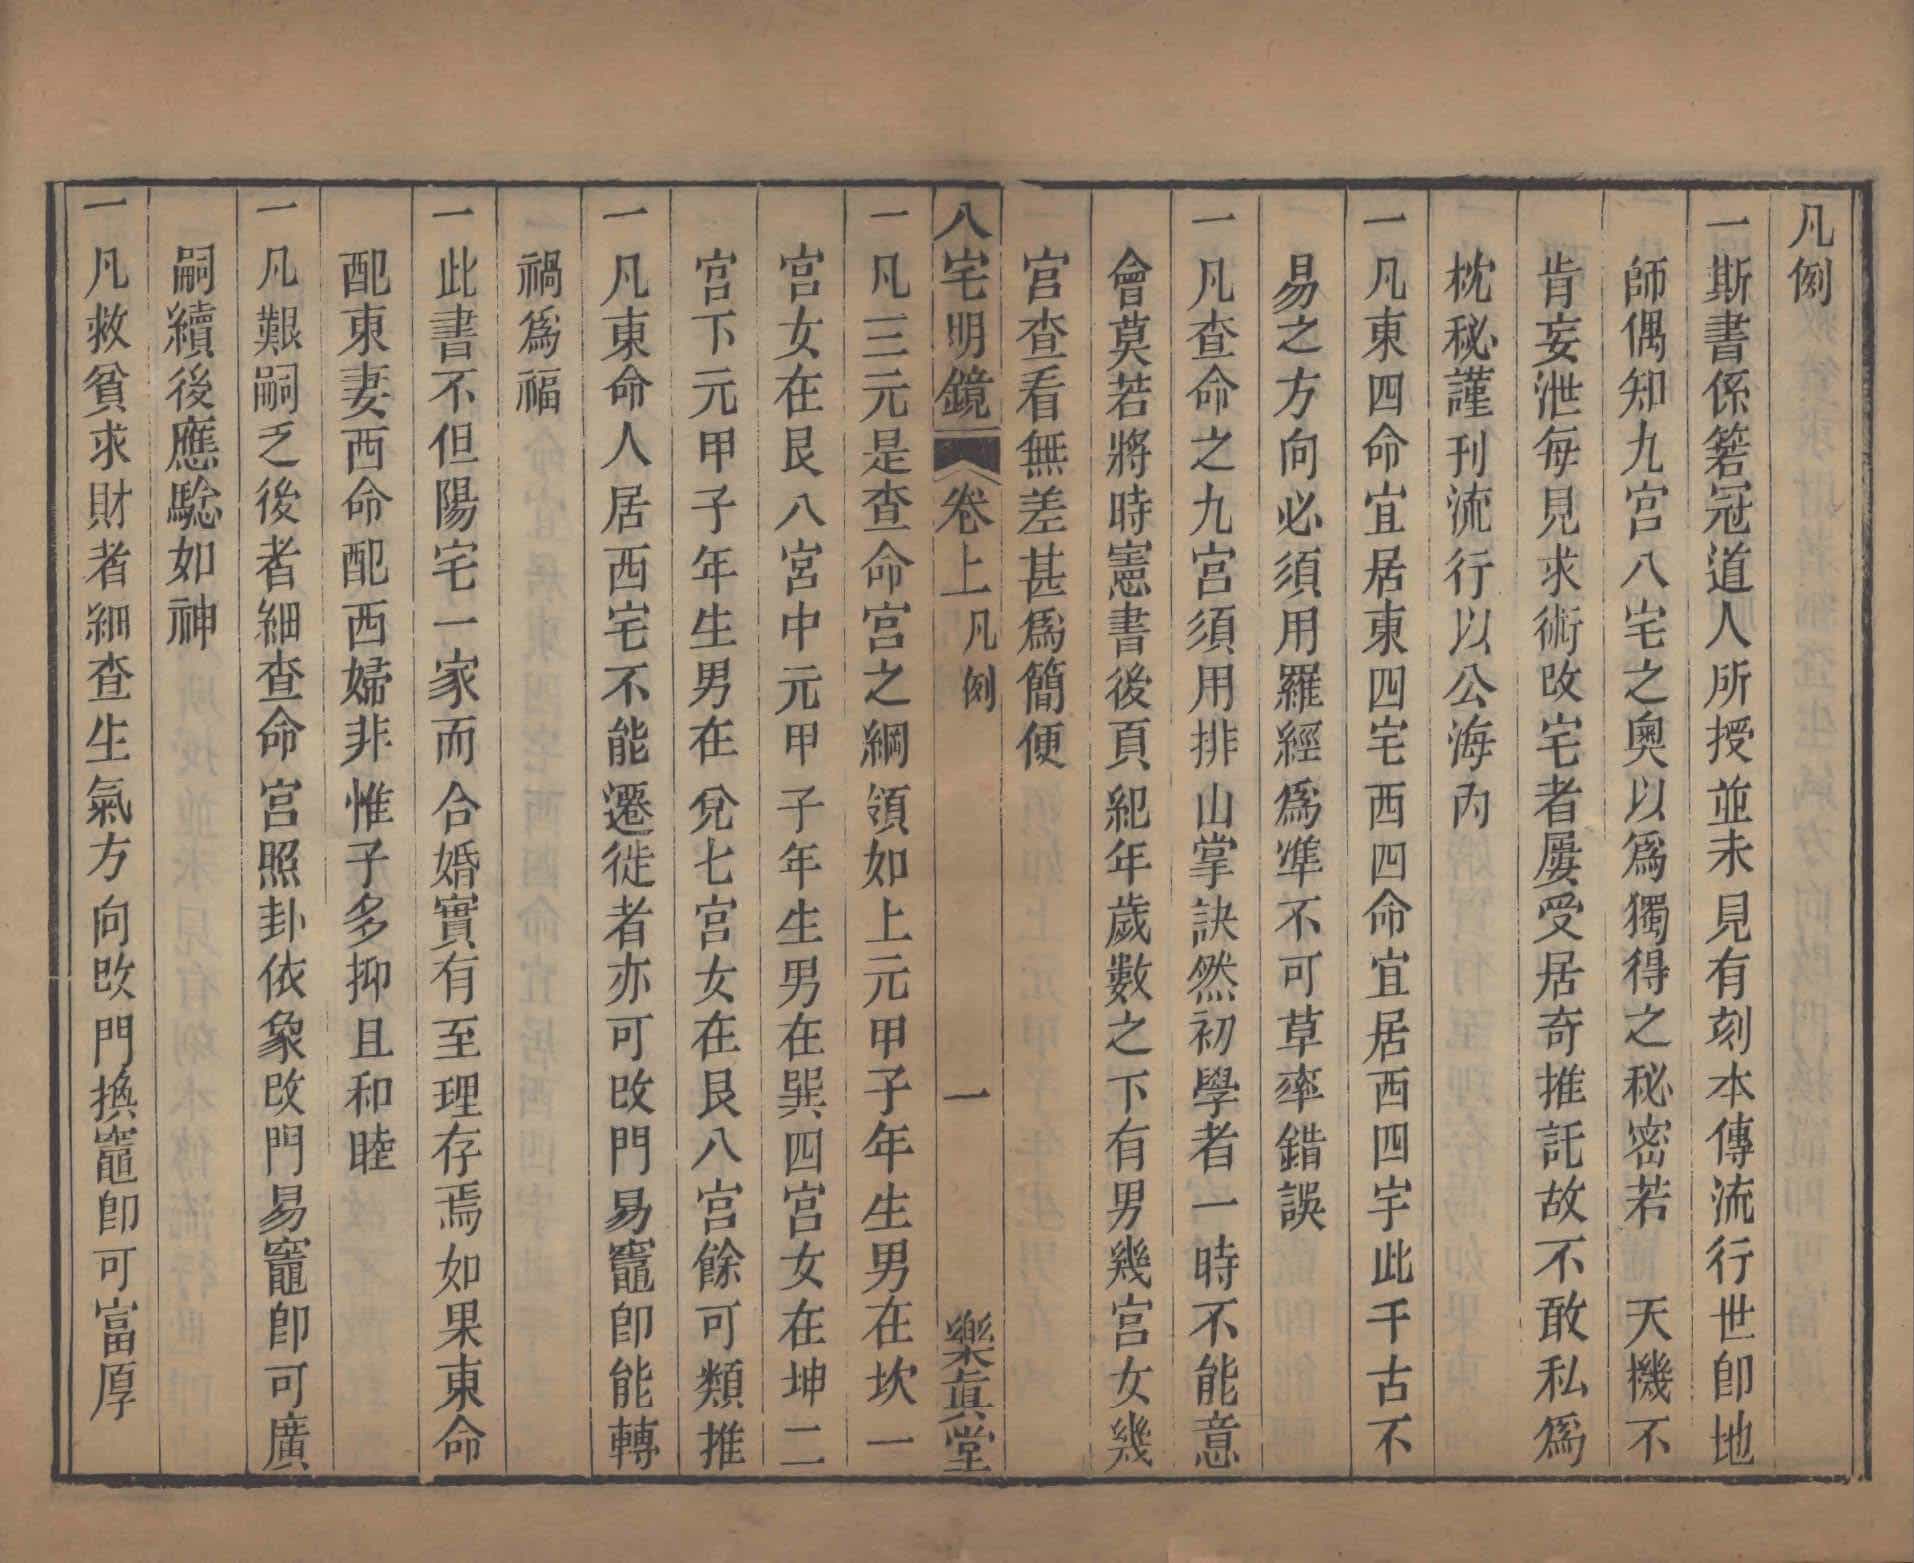 凡例
一斯書係箬冠道人所授並未見有刻本傳流行世卽地
師偶知九宮八宅之奧以爲獨得之秘密若　天機不
肯妄泄每見求術改宅者屢受居奇推託故不敢私爲
枕秘謹刊流行以公海內
一凡東四命宜居東四宅西四命宜居西四宇此千古不
易之方向必須用羅經爲準不可草率錯誤
一凡查命之九宮須用排山掌訣然初學者一時不能意
會莫若將時憲書後頁紀年歲數之下有男幾宮女幾
宮查看無差甚爲簡便
八宅明鏡　卷上　凡例　一　樂真堂
一凡三元是查命宮之綱領如上元甲子年生男在坎一
宮女在艮八宮中元甲子年生男在巽四宮女在坤二
宮下元甲子年生男在兌七宮女在艮八宮餘可類推
一凡東命人居西宅不能遷徙者亦可改門易竈卽能轉
禍爲福
一此書不但陽宅一家而合婚實有至理存焉如果東命
配東妻西命配西婦非惟子多抑且和睦
一凡艱嗣乏後者細查命宮照卦依象改門易竈卽可廣
嗣續後應驗如神
一凡救貧求財者細查生氣方向改門換竈卽可富厚